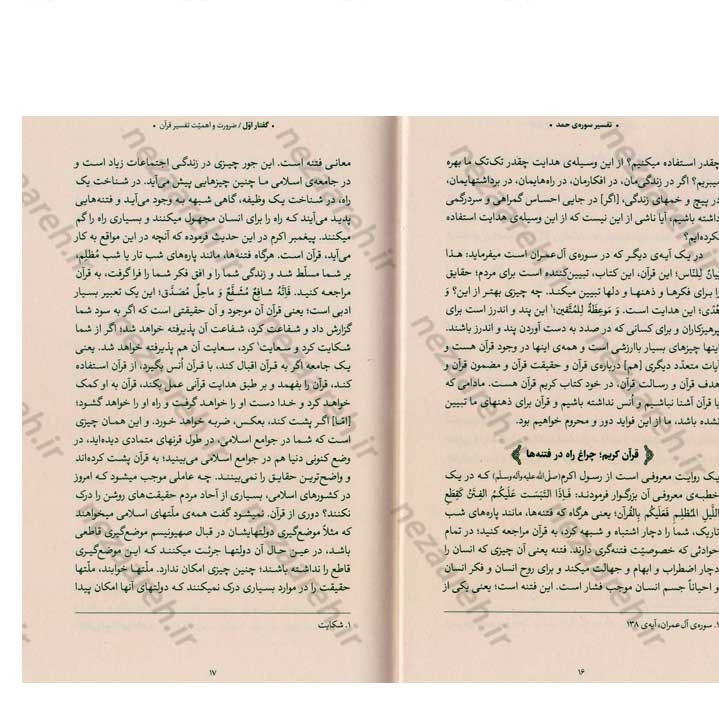 • تفسیر سوره‌ی حمد
چقدر استفاده میکنیم؟ از این وسیله‌ی هدایت چقدر تک‌تک ما بهره
میبریم؟ اگر در زندگی‌مان، در افکارمان، در راه‌هایمان، در برداشتهایمان،
در پیچ و خمهای زندگی، [اگر] در جایی احساس گمراهی و سردرگمی
داشته باشیم، آیا ناشی از این نیست که از این وسیله‌ی هدایت استفاده
نکرده‌ایم؟
در یک آیه‌ی دیگر که در سوره‌ی آل‌عمران است میفرماید: هذا
بَیانٌ لِلنّاس؛ این قرآن، این کتاب، تبیین‌کننده است برای مردم؛ حقایق
را برای فکرها و ذهنها و دلها تبیین میکند. چه چیزی بهتر از این؟ وَ
هُدًی؛ این هدایت است. وَ مَوعِظَةٌ لِلمُتَّقین؛۱ این پند و اندرز است برای
پرهیزکاران و برای کسانی که در صدد به دست آوردن پند و اندرز باشند.
اینها چیزهای بسیار باارزشی است و همه‌ی اینها در وجود قرآن هست و
آیات متعدّد دیگری [هم] درباره‌ی قرآن و حقیقت قرآن و مضمون قرآن و
هدف قرآن و رسالت قرآن، در خود کتاب کریم قرآن هست. مادامی که
با قرآن آشنا نباشیم و اُنس نداشته باشیم و قرآن برای ذهنهای ما تبیین
نشده باشد، ما از این فواید دور و محروم خواهیم بود.
قرآن کریم؛ چراغ راه در فتنه‌ها
یک روایت معروفی است از رسول اکرم (صلّی‌الله‌علیه‌وآله‌وسلّم) که در یک
خطبه‌ی معروفی آن بزرگوار فرمودند: فَـإِذَا التَبَسَت عَلَیکُمُ الفِتَنُ کَقِطَعِ
اللَّیلِ المُظلِـمِ فَعَلَیکُم بِالقُرآن؛ یعنی هرگاه که فتنه‌ها، مانند پاره‌های شب
تاریک، شما را دچار اشتباه و شبهه کرد، به قرآن مراجعه کنید؛ در تمام
حوادثی که خصوصیّت فتنه‌گری دارند. فتنه یعنی آن چیزی که انسان را
دچار اضطراب و ابهام و جهالت میکند و برای روح انسان و فکر انسان
و احیاناً جسم انسان موجب فشار است. این فتنه است؛ یعنی یکی از
۱. سوره‌ی آل‌عمران، آیه‌ی ۱۳۸
۱۶
• گفتار اوّل / ضرورت و اهمیّت تفسیر قرآن •
معانی فتنه است. این جور چیزی در زندگی اجتماعات زیاد است و
در جامعه‌ی اسلامی ما چنین چیزهایی پیش می‌آید. در شناخت یک
راه، در شناخت یک وظیفه، گاهی شبهه به وجود می‌آید و فتنه‌هایی
پدید می‌آیند که راه را برای انسان مجهول میکنند و بسیاری راه را گم
میکنند. پیغمبر اکرم در این حدیث فرموده که آنچه در این مواقع به کار
می‌آید، قرآن است. هرگاه فتنه‌ها، مانند پاره‌های شب تار یا شب مُظلِم،
بر شما مسلّط شد و زندگی شما را و افق فکر شما را فراگرفت، به قرآن
مراجعه کنید. فَإِنَّهُ شافِعٌ مُشَفَّعٌ وَ ماحِلٌ مُصَدَّق؛ این یک تعبیر بسیار
ادبی است؛ یعنی قرآن آن موجود و آن حقیقتی است که اگر به سود شما
گزارش داد و شفاعت کرد، شفاعت آن پذیرفته خواهد شد؛ اگر از شما
شکایت کرد و سعایت۱ کرد، سعایت آن هم پذیرفته خواهد شد. یعنی
یک جامعه اگر به قرآن اقبال کند، با قرآن اُنس بگیرد، از قرآن استفاده
کند، قرآن را بفهمد و بر طبق هدایت قرآنی عمل بکند، قرآن به او کمک
خواهد کرد و خدا دست او را خواهد گرفت و راه او را خواهد گشود؛
[امّا] اگر پشت کند، بعکس، ضربه خواهد خورد. و این همان چیزی
است که شما در جوامع اسلامی، در طول قرنهای متمادی دیده‌اید، در
وضع کنونی دنیا هم در جوامع اسلامی می‌بینید؛ به قرآن پشت کرده‌اند
و واضح‌ترین حقایق را نمی‌بیننـد. چـه عاملی موجب میشـود که امروز
در کشورهای اسلامی، بسیاری از آحاد مردم حقیقت‌های روشن را درک
نکنند؟ دوری از قرآن. نمیشود گفت همه‌ی ملّتهای اسلامی میخواهند
که مثلاً موضع‌گیری دولتهایشـان در قبال صهیونیسم موضع‌گیری قاطعی
باشد، در عیـن حـال آن دولتهـا جرئـت میکننـد کـه این موضع‌گیـری
قاطع را نداشته باشند؛ چنین چیزی امکان ندارد. ملّتها خوابند، ملّتها
حقیقت را در موارد بسیاری درک نمیکنند که دولتهای آنها امکان پیدا
۱. شکایت
۱۷
nezareh.ir